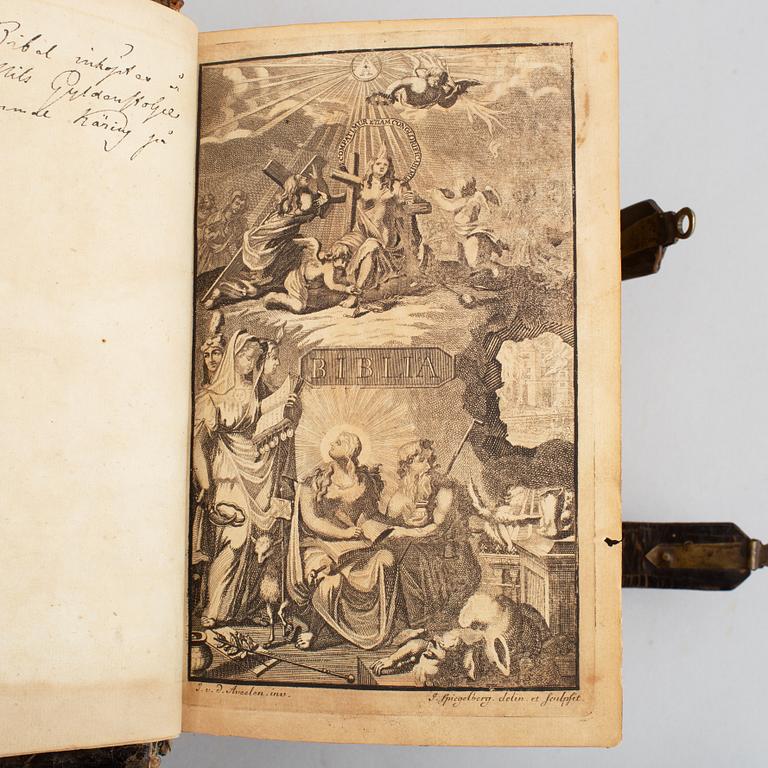 Bibel inköpt av
Nils Gyldenstolpe
Käring på
A
COMPATIMUR ETIAM CONGLORIFICAMUR
BIBLIA
J. v. d. Aveelen. inv.
J. Spiegelberg. delin. et sculpsit.